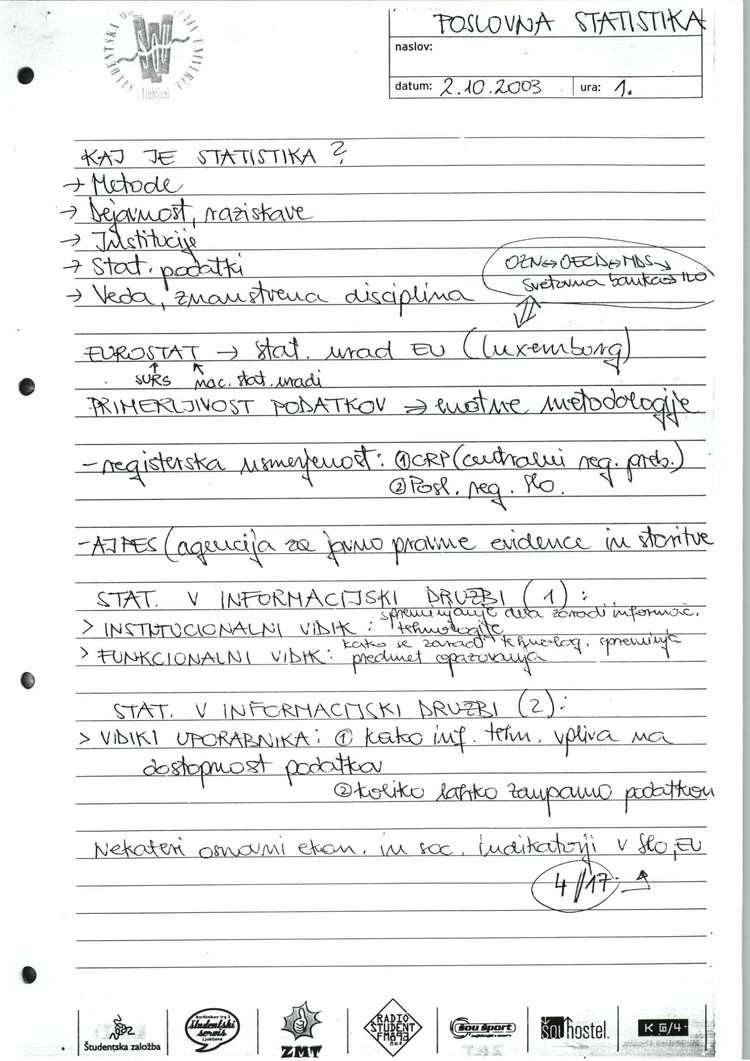 POSLOVNA STATISTIKA
naslov:
datum: 2.10.2003 ura: 1.
KAJ JE STATISTIKA?
→ Metode
→ Dejavnost, raziskave
→ Institucije
→ Stat. podatki
→ Veda, znanstvena disciplina
OZN ↔ OECD ↔ MDS ↘
Svetovna banka ↔ ILO
EUROSTAT → stat. urad EU (Luxemburg)
SURS nac. stat. uradi
PRIMERLJIVOST PODATKOV ⇒ enotne metodologije
- registerska usmerjenost: ① CRP (centralni reg. preb.)
② Posl. reg. Slo.
- AJPES (agencija za javno pravne evidence in storitve
STAT. V INFORMACIJSKI DRUŽBI (1):
spreminjanje dela zaradi informac.
> INSTITUCIONALNI VIDIK: tehnologije
kako se zaradi tehnolog. spreminja
> FUNKCIONALNI VIDIK: predmet opazovanja
STAT. V INFORMACIJSKI DRUŽBI (2):
> VIDIKI UPORABNIKA: ① kako inf. tehn. vpliva na
dostopnost podatkov
② koliko lahko zaupamo podatkom
Nekateri osnovni ekon. in soc. indikatorji v Slo, EU
4//17
Študentska založba
Študentski servis
Ljubljana
ZMT
RADIO ŠTUDENT FM 89,3 MHz
šou šport
šou hostel.
K G/4